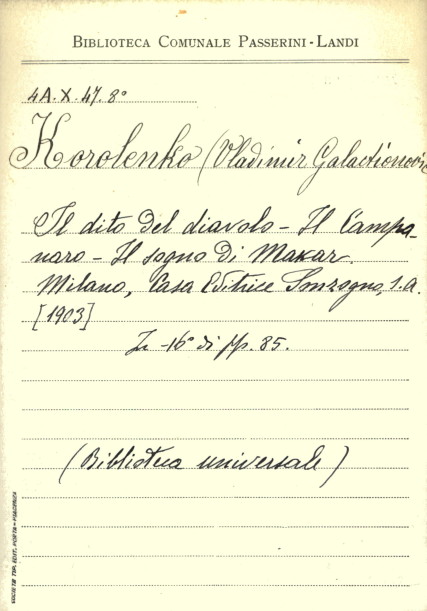 BIBLIOTECA COMUNALE PASSERINI-LANDI
4A. X. 47. 8°
Korolenko (Vladimir Galactionovic
Il dito del diavolo - Il Campa-
naro - Il sogno di Makar.
Milano, Casa Editrice Sonzogno, s.a.
[1903]
In -16° di pp. 85.
(Biblioteca universale)
SOCIETÀ TIP. EDIT. PORTA - PIACENZA